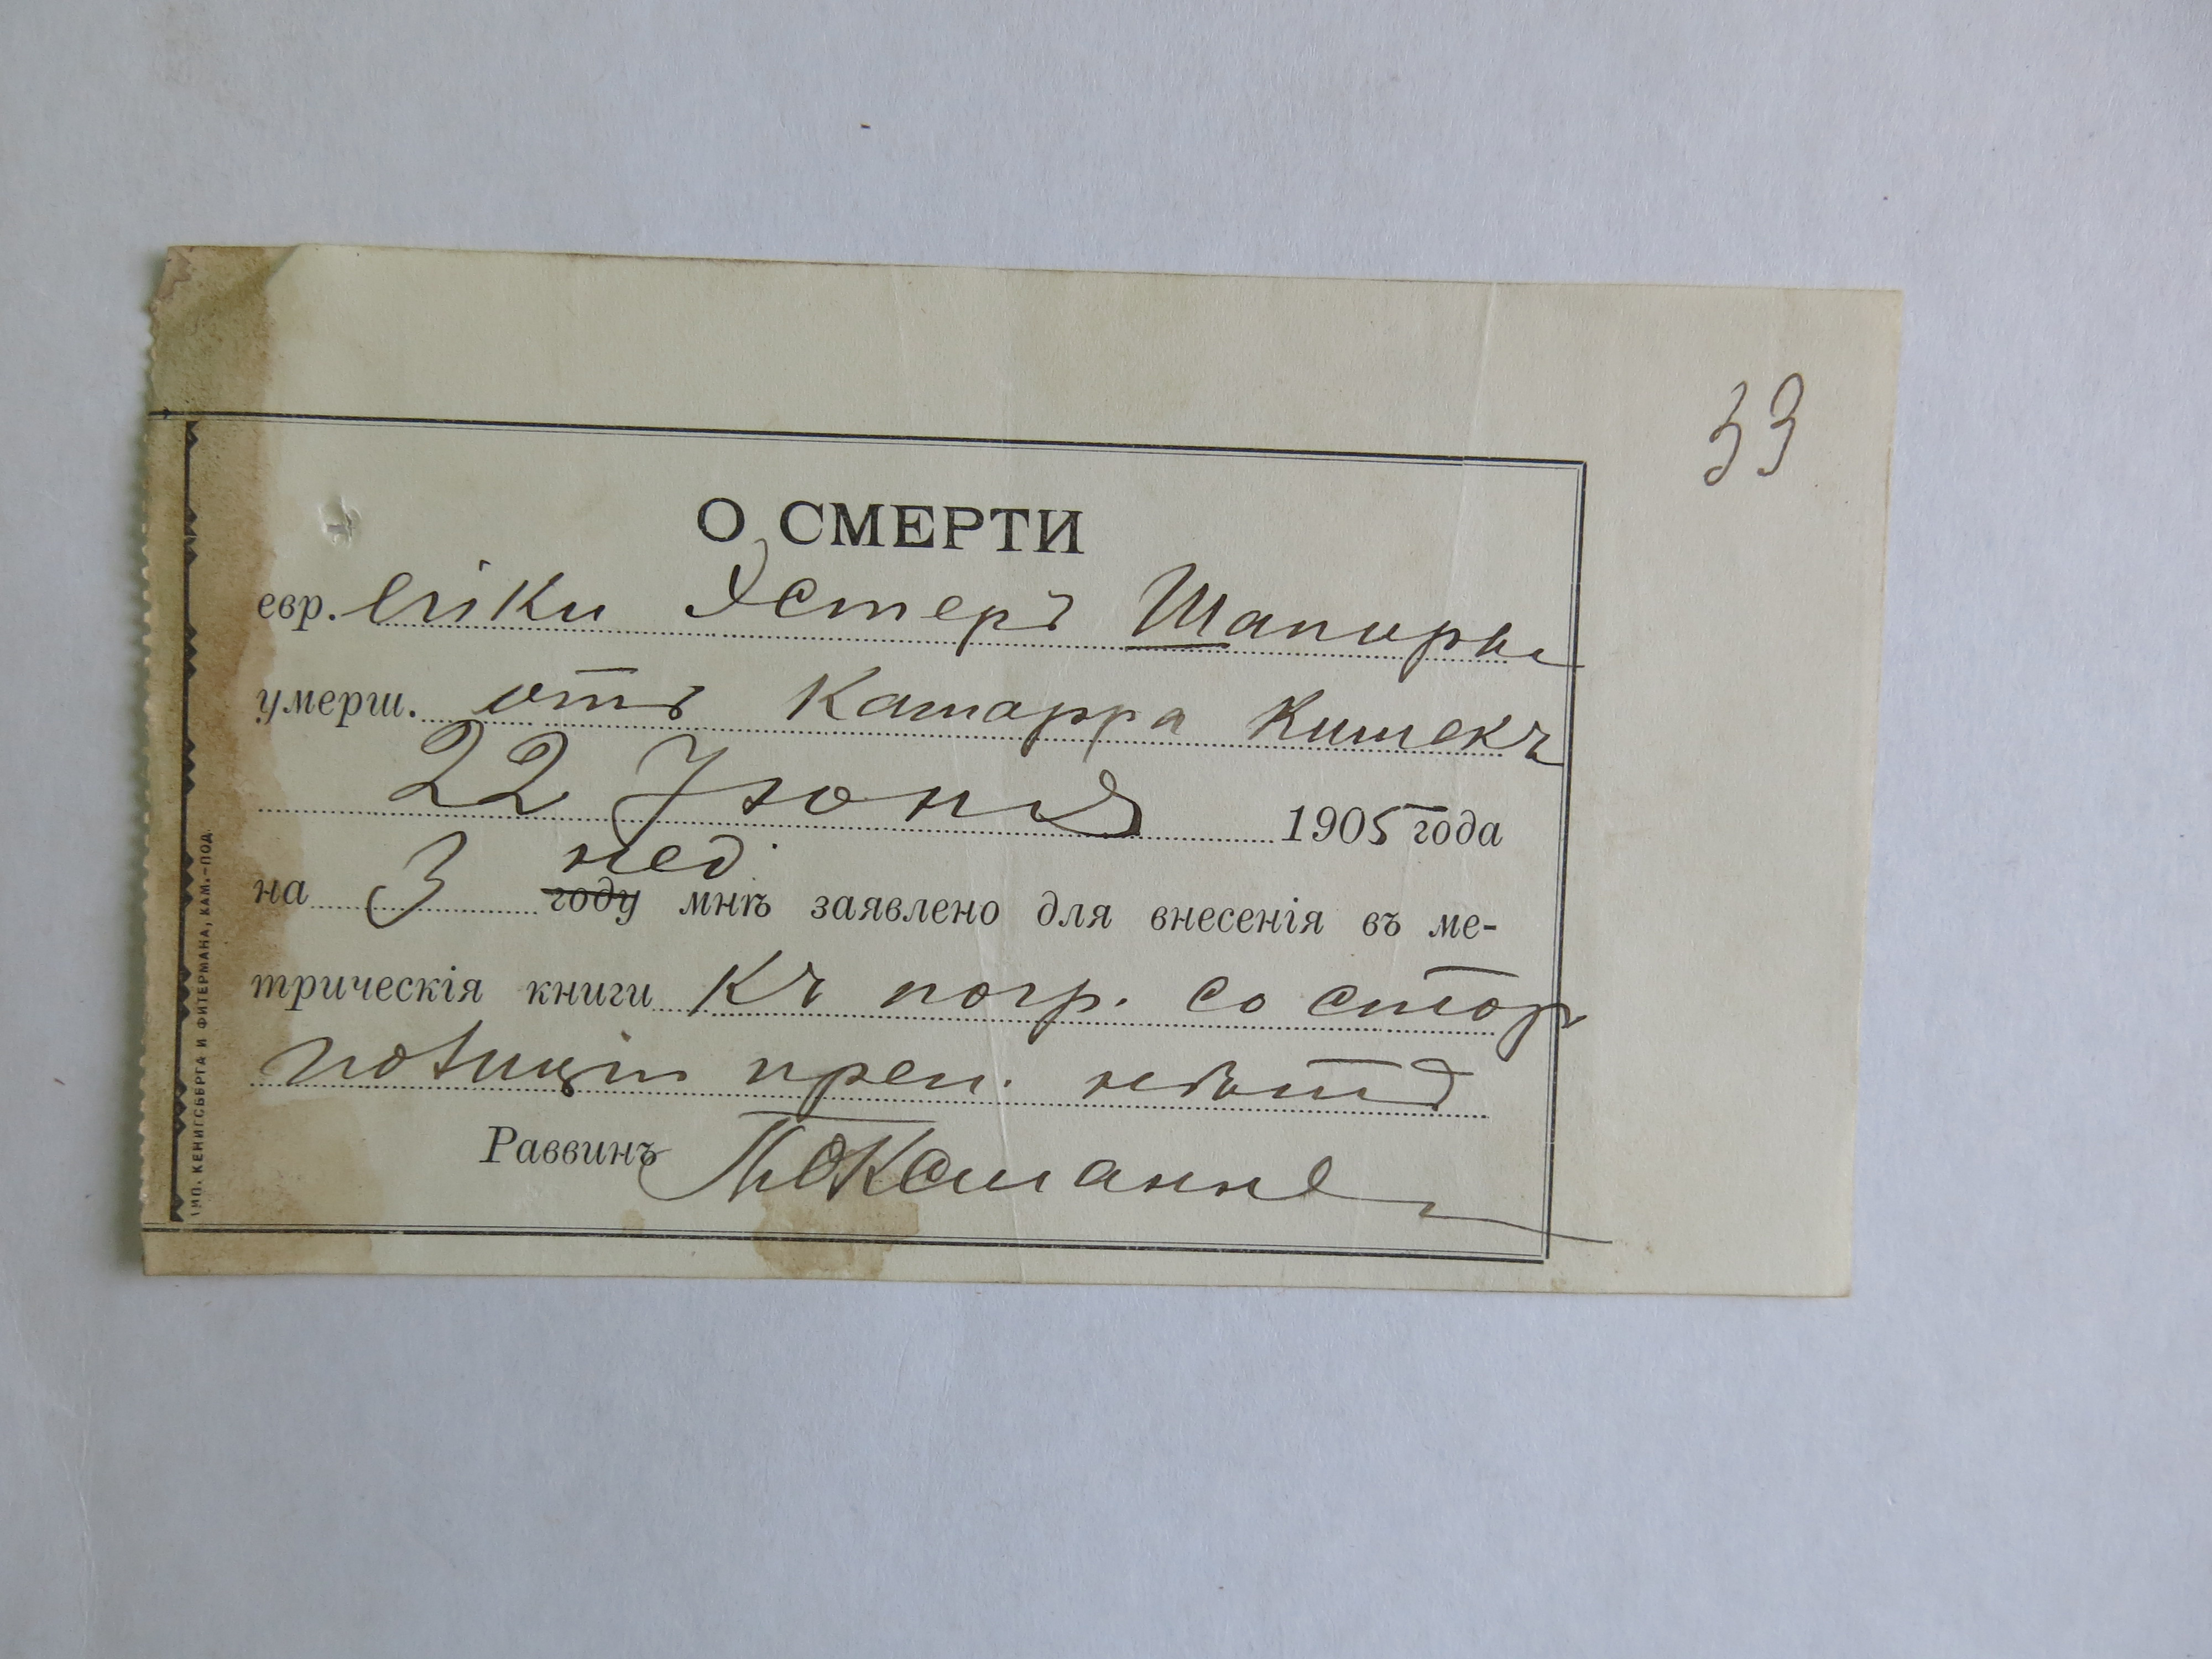 33
О СМЕРТИ
евр. Эстеръ Шапиры
умерш. отъ Катарра Кишекъ
22 Іюня 1905 года
нед.
на 3 году мнѣ заявлено для внесенія въ ме-
трическія книги Къ погр. со стор
полиціи преп. нѣтъ
Раввинъ
ТИО. КЕНИГСБЕРГА И ФИТЕРМАНА, КАМ.-ПОД.